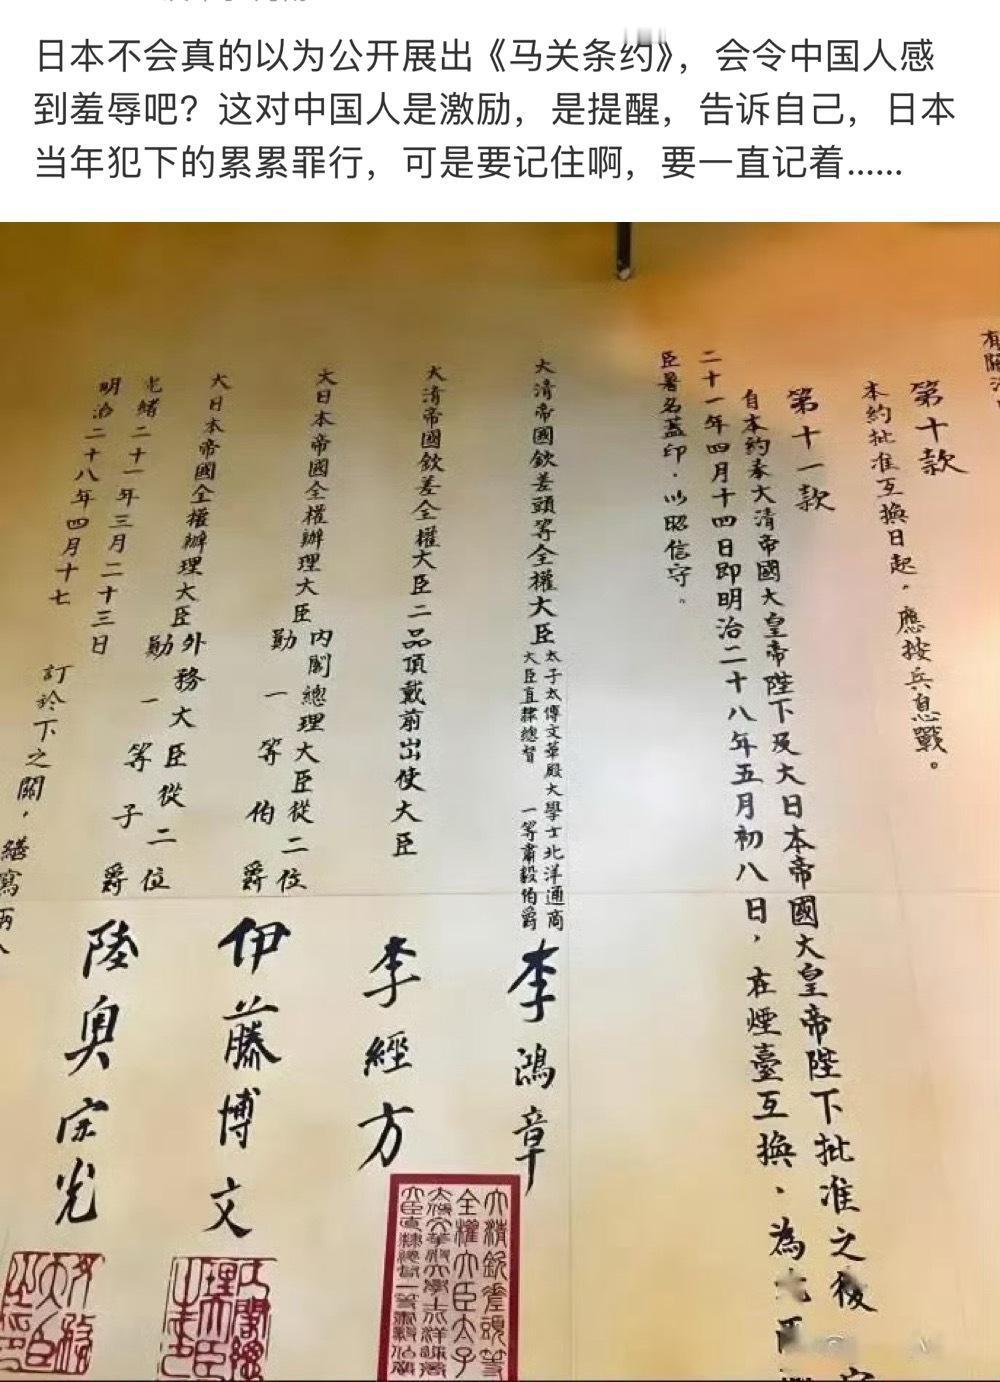 日本不会真的以为公开展出《马关条约》，会令中国人感
到羞辱吧？这对中国人是激励，是提醒，告诉自己，日本
当年犯下的累累罪行，可是要记住啊，要一直记着……
第十款
本約批准互換日起，應按兵息戰。
第十一款
自本約奉大清帝國大皇帝陛下及大日本帝國大皇帝陛下批准之後
二十一年四月十四日即明治二十八年五月初八日，在煙臺互換．為
臣署名蓋印．以昭信守。
大清帝國欽差頭等全權大臣
太子太傅文華殿大學士北洋通商
大臣直隸總督 一等肅毅伯爵
李鴻章
大清帝國欽差全權大臣二品頂戴前出使大臣
李經方
大日本帝國全權辦理大臣
內閣總理大臣從二位
勳一等伯爵
伊藤博文
大日本帝國全權辦理大臣
外務大臣從二位
勳一等子爵
陸奥宗光
光緒二十一年三月二十三日
明治二十八年四月十七
訂於下之關，繕寫兩
大清欽差頭等
全權大臣太子
太傅文華殿大學士北洋通商
大臣直隸總督一等肅毅伯爵